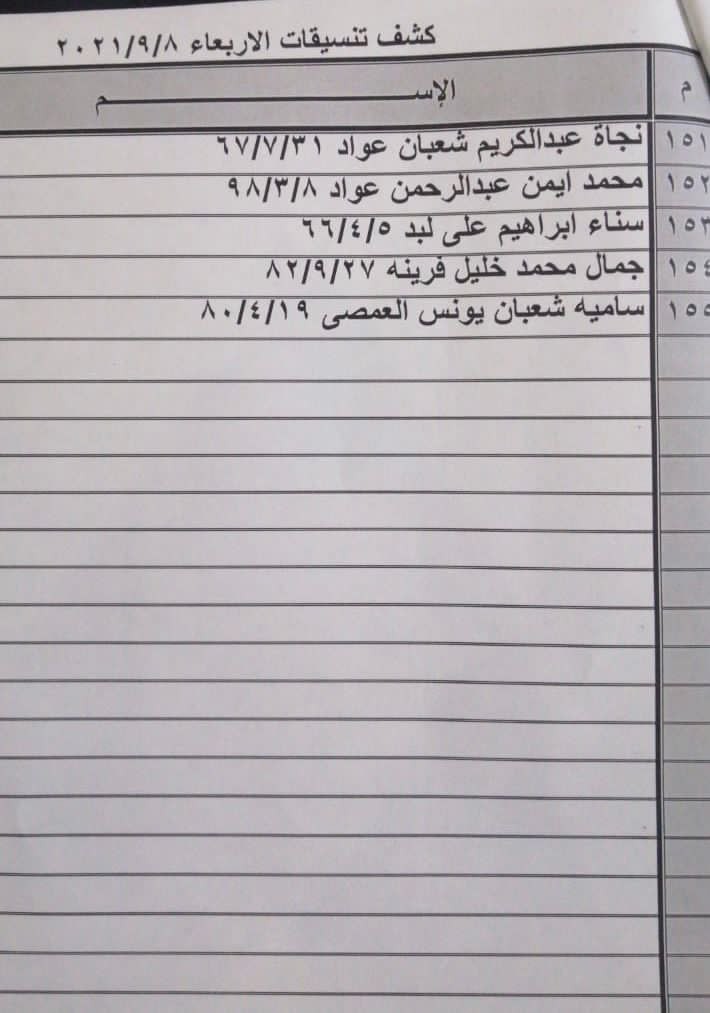 كشف تنسيقات الاربعاء ٢٠٢١/٩/٨
م الإســــــــــــــم
١٥١ نجاة عبدالكريم شعبان عواد ٦٧/٧/٣١
١٥٢ محمد ايمن عبدالرحمن عواد ٩٨/٣/٨
١٥٣ سناء ابراهيم على لبد ٦٦/٤/٥
١٥٤ جمال محمد خليل فرينه ٨٢/٩/٢٧
١٥٥ ساميه شعبان يونس العمصى ٨٠/٤/١٩